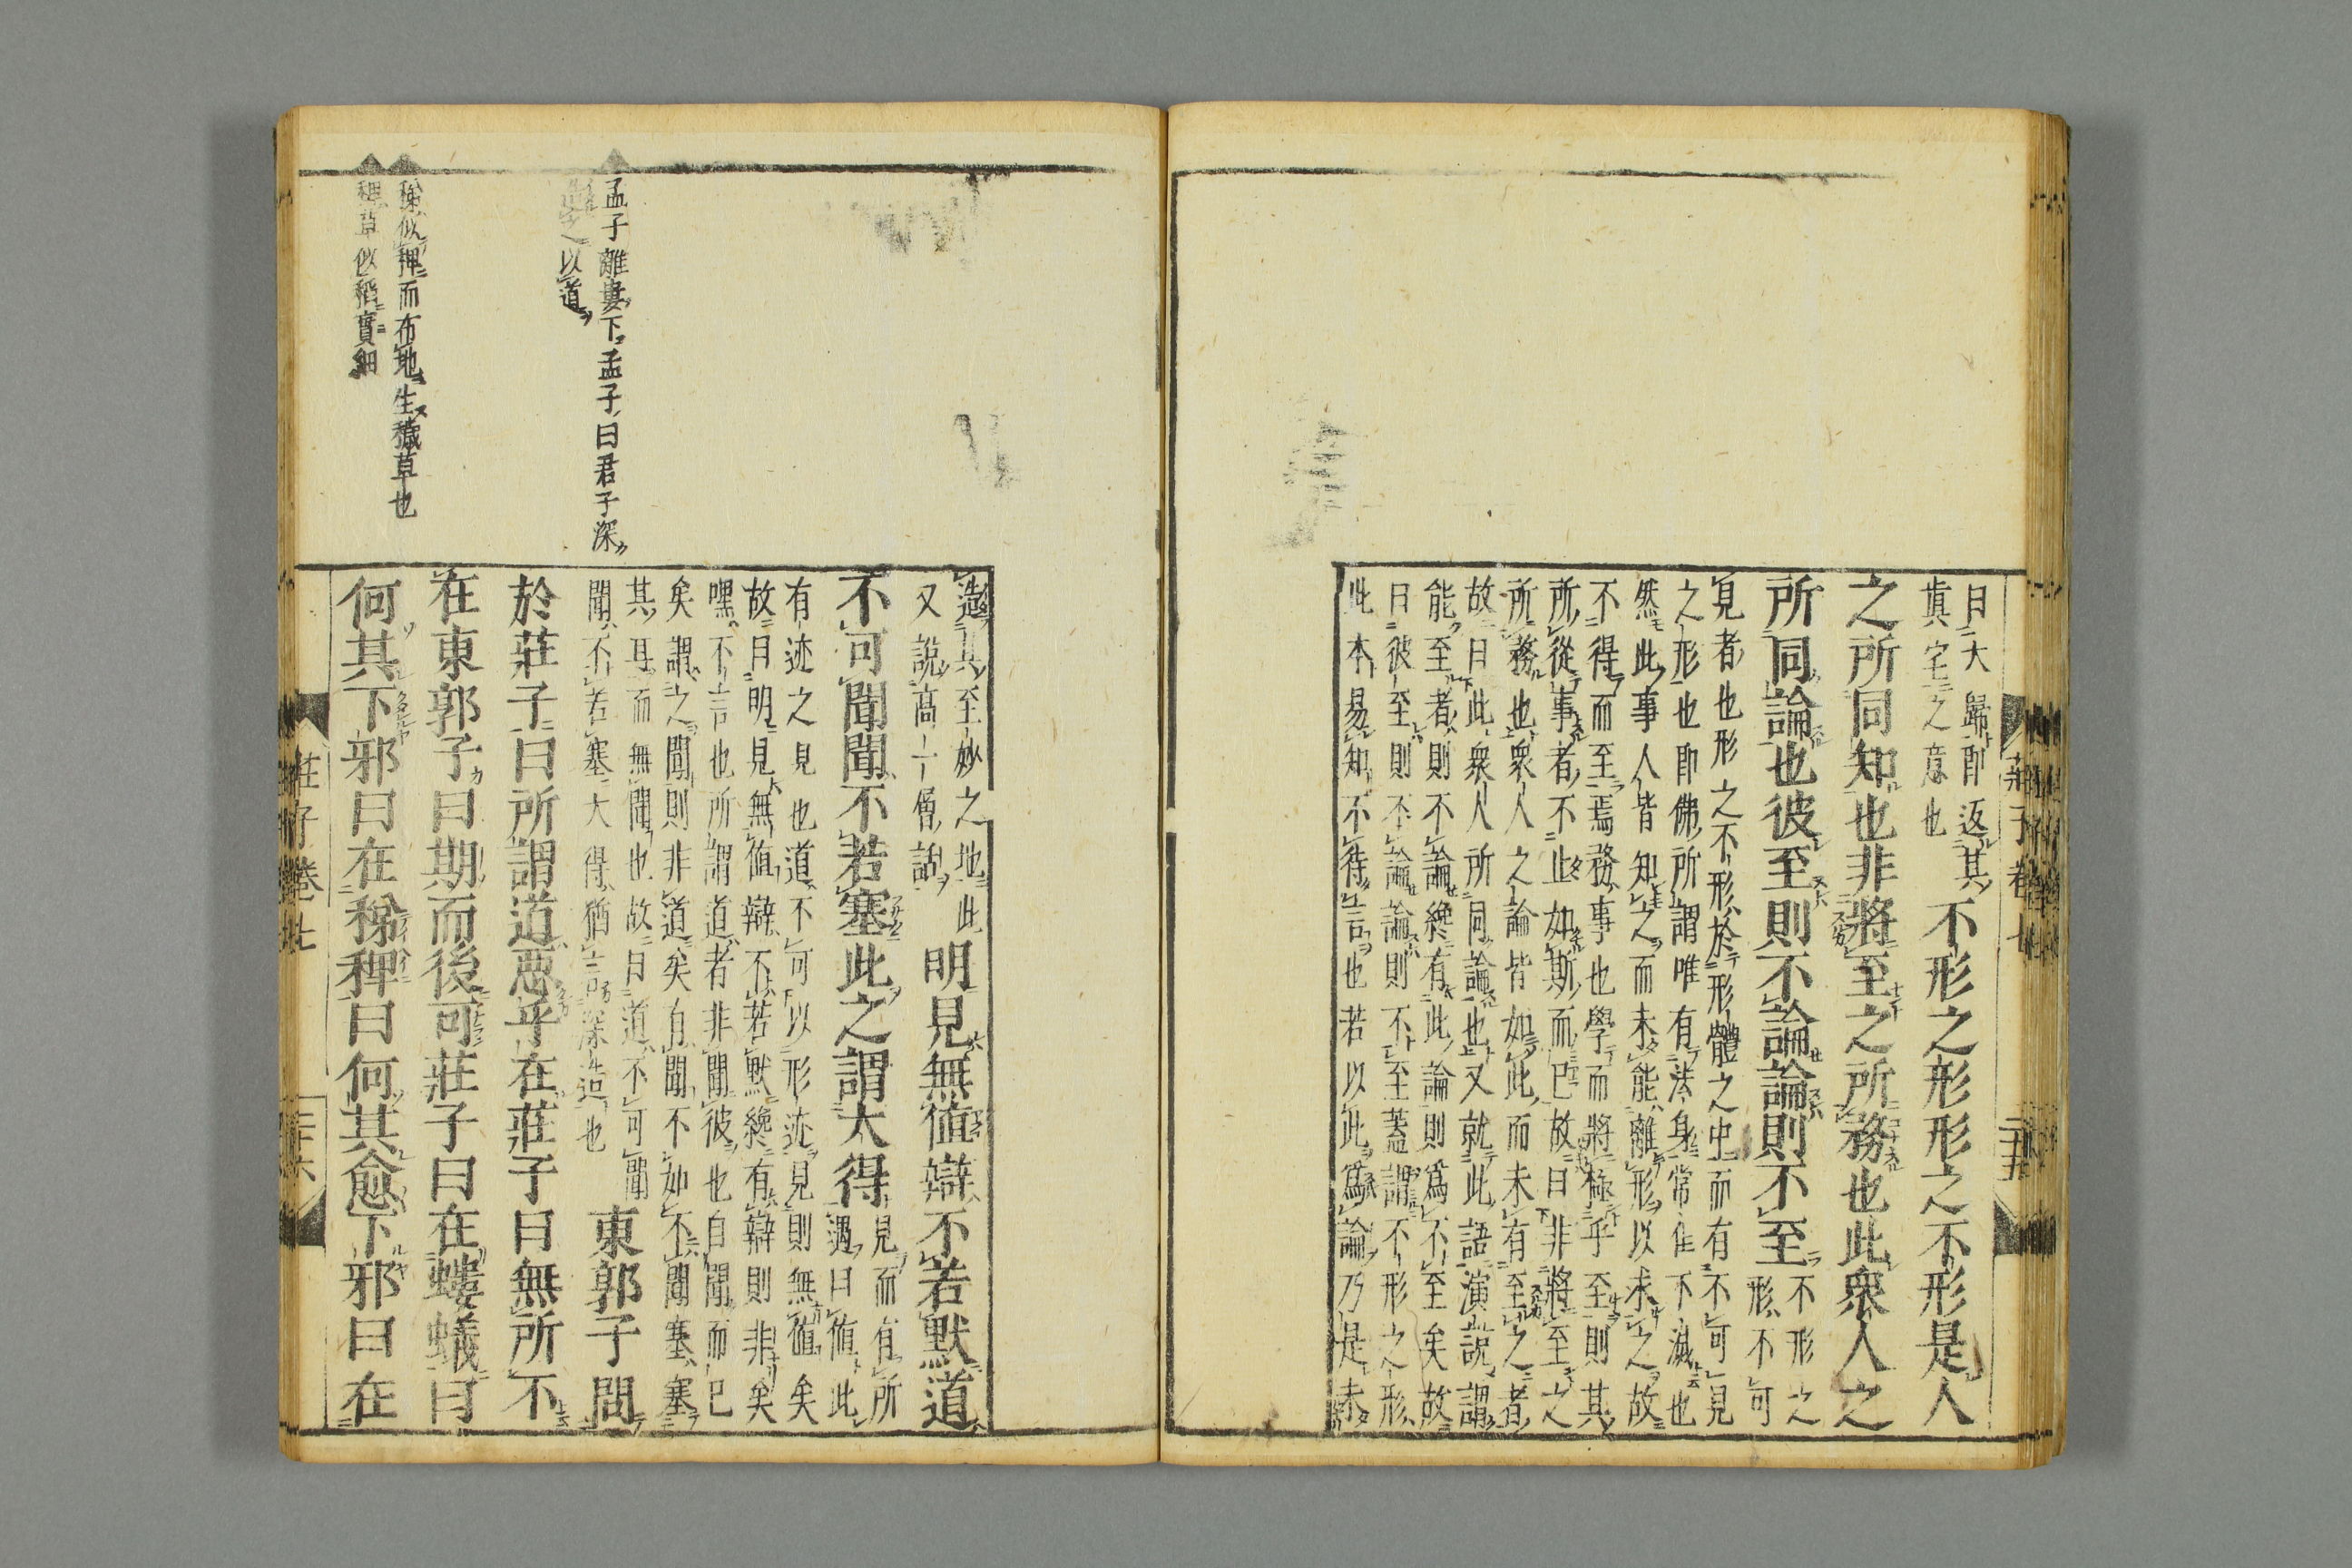 曰大歸即返其
眞宅之意也
不形之形形之不形是人
之所同知也非將至之所務也此衆人之
所同論也彼至則不論論則不至
不形之
形不可
見者也形之不形於形體之中而有不可見
之形也即佛所謂唯有法身常住不滅也
然此事人皆知之而未能離形以求之故
不得而至焉務事也學而將極乎至則其
所從事者不止如斯而已故曰非將至之
所務也衆人之論皆如此而未有至之者
故曰此衆人所同論也又就此語演說謂
能至者則不論纔有此論則爲不至矣故
曰彼至則不論論則不至蓋謂不形之形
此本易知不待言也若以此爲論乃是未
莊子卷七
三十五
造其至妙之地此
又說高一層話
明見無値辯不若默道
不可聞聞不若塞此之謂大得
見而有所
遇曰値此
有迹之見也道不可以形迹見則無値矣
故曰明見無値辯不若默纔有辯則非矣
嘿不言也所謂道者非聞彼也自聞而已
矣謂之聞則非道矣有聞不如不聞塞塞
其耳而無聞也故曰道不可聞
聞不若塞大得猶言深造也
東郭子問
於莊子曰所謂道惡乎在莊子曰無所不
在東郭子曰期而後可莊子曰在螻蟻曰
何其下邪曰在稊稗曰何其愈下邪曰在
孟子離婁下孟子曰君子深
造之以道
稊似稗而布地生穢草也
稗草似稻實細
莊子卷七
三十六